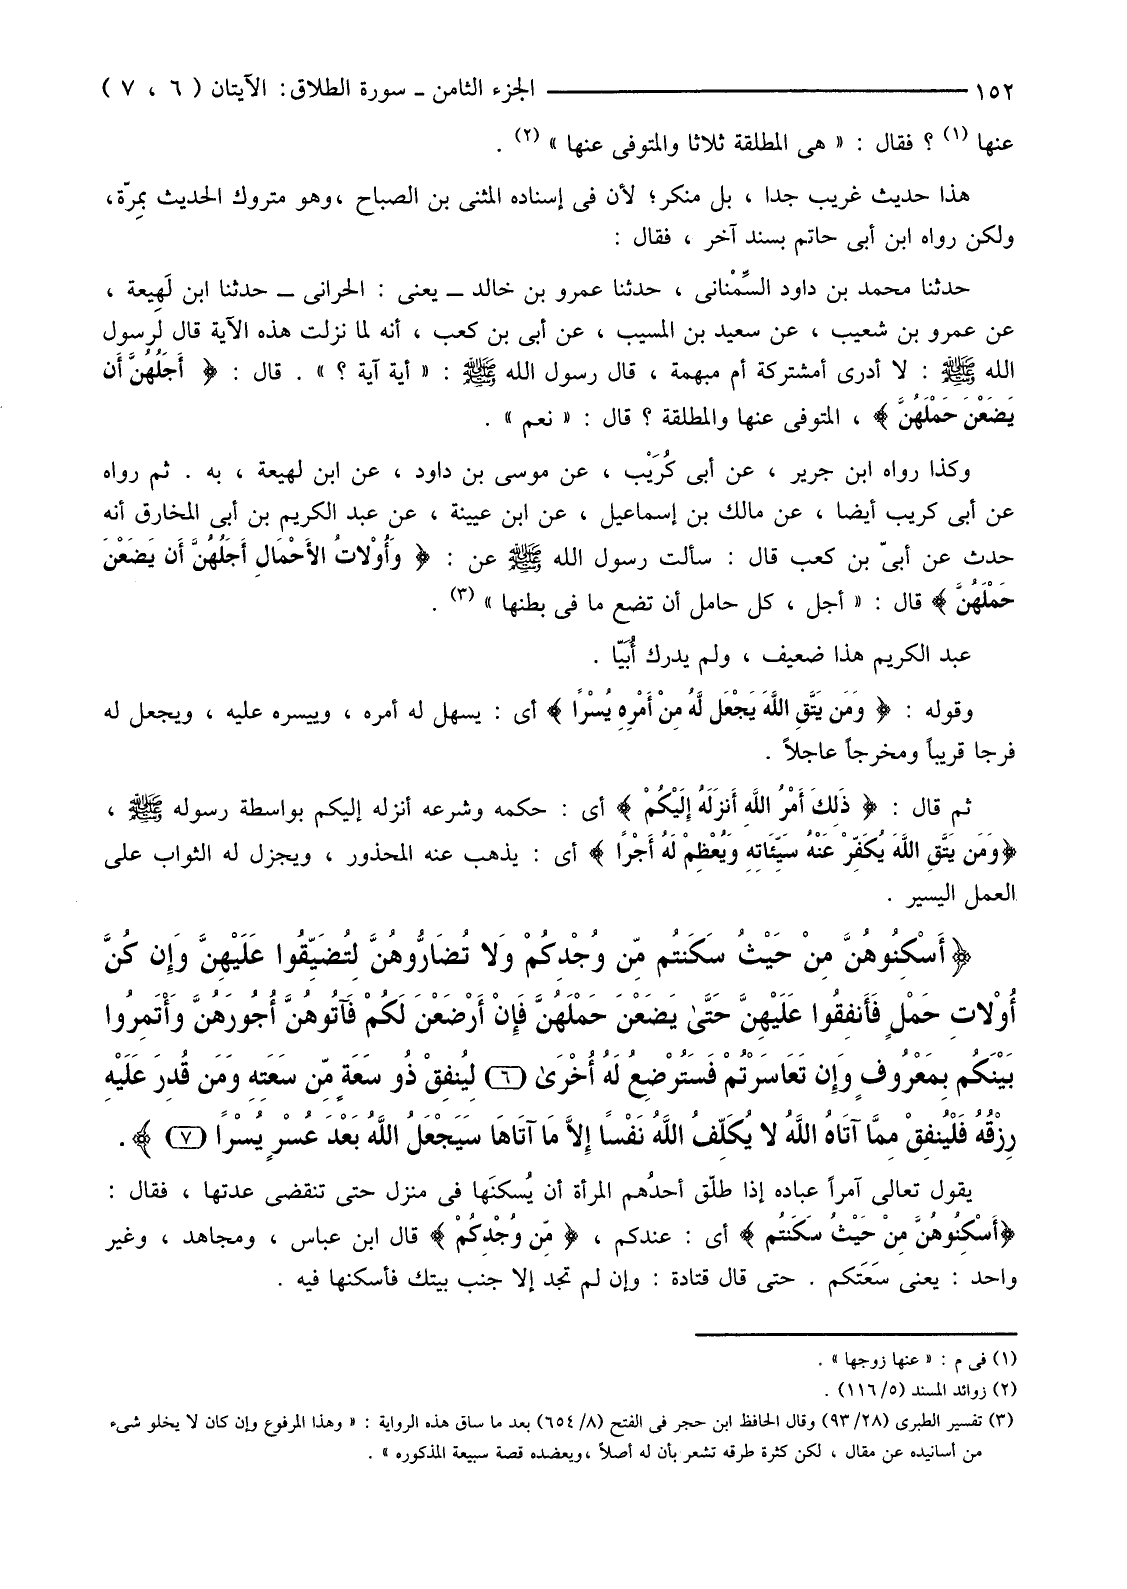 ١٥٢ ــــــــــ الجزء الثامن ـ سورة الطلاق: الآيتان ( ٦ ، ٧ )
عنها (١) ؟ فقال : « هى المطلقة ثلاثا والمتوفى عنها » (٢) .
هذا حديث غريب جدا ، بل منكر؛ لأن فى إسناده المثنى بن الصباح ،وهو متروك الحديث بمِرّة،
ولكن رواه ابن أبى حاتم بسند آخر ، فقال :
حدثنا محمد بن داود السِّمْنانى ، حدثنا عمرو بن خالد ــ يعنى : الحرانى ــ حدثنا ابن لَهِيعة ،
عن عمرو بن شعيب ، عن سعيد بن المسيب ، عن أبى بن كعب ، أنه لما نزلت هذه الآية قال لرسول
الله ﷺ : لا أدرى أمشتركة أم مبهمة ، قال رسول الله ﷺ : « أية آية ؟ » . قال : ﴿ أَجَلُهُنَّ أَن
يَضَعْنَ حَمْلَهُنَّ ﴾ ، المتوفى عنها والمطلقة ؟ قال : « نعم » .
وكذا رواه ابن جرير ، عن أبى كُرَيْب ، عن موسى بن داود ، عن ابن لهيعة ، به . ثم رواه
عن أبى كريب أيضا ، عن مالك بن إسماعيل ، عن ابن عيينة ، عن عبد الكريم بن أبى المخارق أنه
حدث عن أبىّ بن كعب قال : سألت رسول الله ﷺ عن : ﴿ وَأُوْلاتُ الأَحْمَالِ أَجَلُهُنَّ أَن يَضَعْنَ
حَمْلَهُنَّ ﴾ قال : « أجل ، كل حامل أن تضع ما فى بطنها » (٣) .
عبد الكريم هذا ضعيف ، ولم يدرك أُبَيّا .
وقوله : ﴿ وَمَن يَتَّقِ اللَّهَ يَجْعَل لَّهُ مِنْ أَمْرِهِ يُسْرًا ﴾ أى : يسهل له أمره ، وييسره عليه ، ويجعل له
فرجا قريباً ومخرجاً عاجلاً .
ثم قال : ﴿ ذَلِكَ أَمْرُ اللَّهِ أَنزَلَهُ إِلَيْكُمْ ﴾ أى : حكمه وشرعه أنزله إليكم بواسطة رسوله ﷺ ،
﴿وَمَن يَتَّقِ اللَّهَ يُكَفِّرْ عَنْهُ سَيِّئَاتِهِ وَيُعْظِمْ لَهُ أَجْرًا ﴾ أى : يذهب عنه المحذور ، ويجزل له الثواب على
العمل اليسير .
﴿أَسْكِنُوهُنَّ مِنْ حَيْثُ سَكَنتُم مِّن وُجْدِكُمْ وَلا تُضَارُّوهُنَّ لِتُضَيِّقُوا عَلَيْهِنَّ وَإِن كُنَّ
أُوْلاتِ حَمْلٍ فَأَنفِقُوا عَلَيْهِنَّ حَتَّىٰ يَضَعْنَ حَمْلَهُنَّ فَإِنْ أَرْضَعْنَ لَكُمْ فَآتُوهُنَّ أُجُورَهُنَّ وَأْتَمِرُوا
بَيْنَكُم بِمَعْرُوفٍ وَإِن تَعَاسَرْتُمْ فَسَتُرْضِعُ لَهُ أُخْرَىٰ (٦) لِيُنفِقْ ذُو سَعَةٍ مِّن سَعَتِهِ وَمَن قُدِرَ عَلَيْهِ
رِزْقُهُ فَلْيُنفِقْ مِمَّا آتَاهُ اللَّهُ لا يُكَلِّفُ اللَّهُ نَفْسًا إِلاَّ مَا آتَاهَا سَيَجْعَلُ اللَّهُ بَعْدَ عُسْرٍ يُسْرًا (٧) ﴾ .
يقول تعالى آمراً عباده إذا طلّق أحدُهم المرأة أن يُسكنَها فى منزل حتى تنقضى عدتها ، فقال :
﴿أَسْكِنُوهُنَّ مِنْ حَيْثُ سَكَنتُم ﴾ أى : عندكم ، ﴿ مِّن وُجْدِكُمْ ﴾ قال ابن عباس ، ومجاهد ، وغير
واحد : يعنى سَعَتكم . حتى قال قتادة : وإن لم تجد إلا جنب بيتك فأسكنها فيه .
(١) فى م : « عنها زوجها » .
(٢) زوائد المسند (٥/ ١١٦) .
(٣) تفسير الطبرى (٢٨/ ٩٣) وقال الحافظ ابن حجر فى الفتح (٨/ ٦٥٤) بعد ما ساق هذه الرواية : « وهذا المرفوع وإن كان لا يخلو شىء
من أسانيده عن مقال ، لكن كثرة طرقه تشعر بأن له أصلاً ،ويعضده قصة سبيعة المذكوره » .